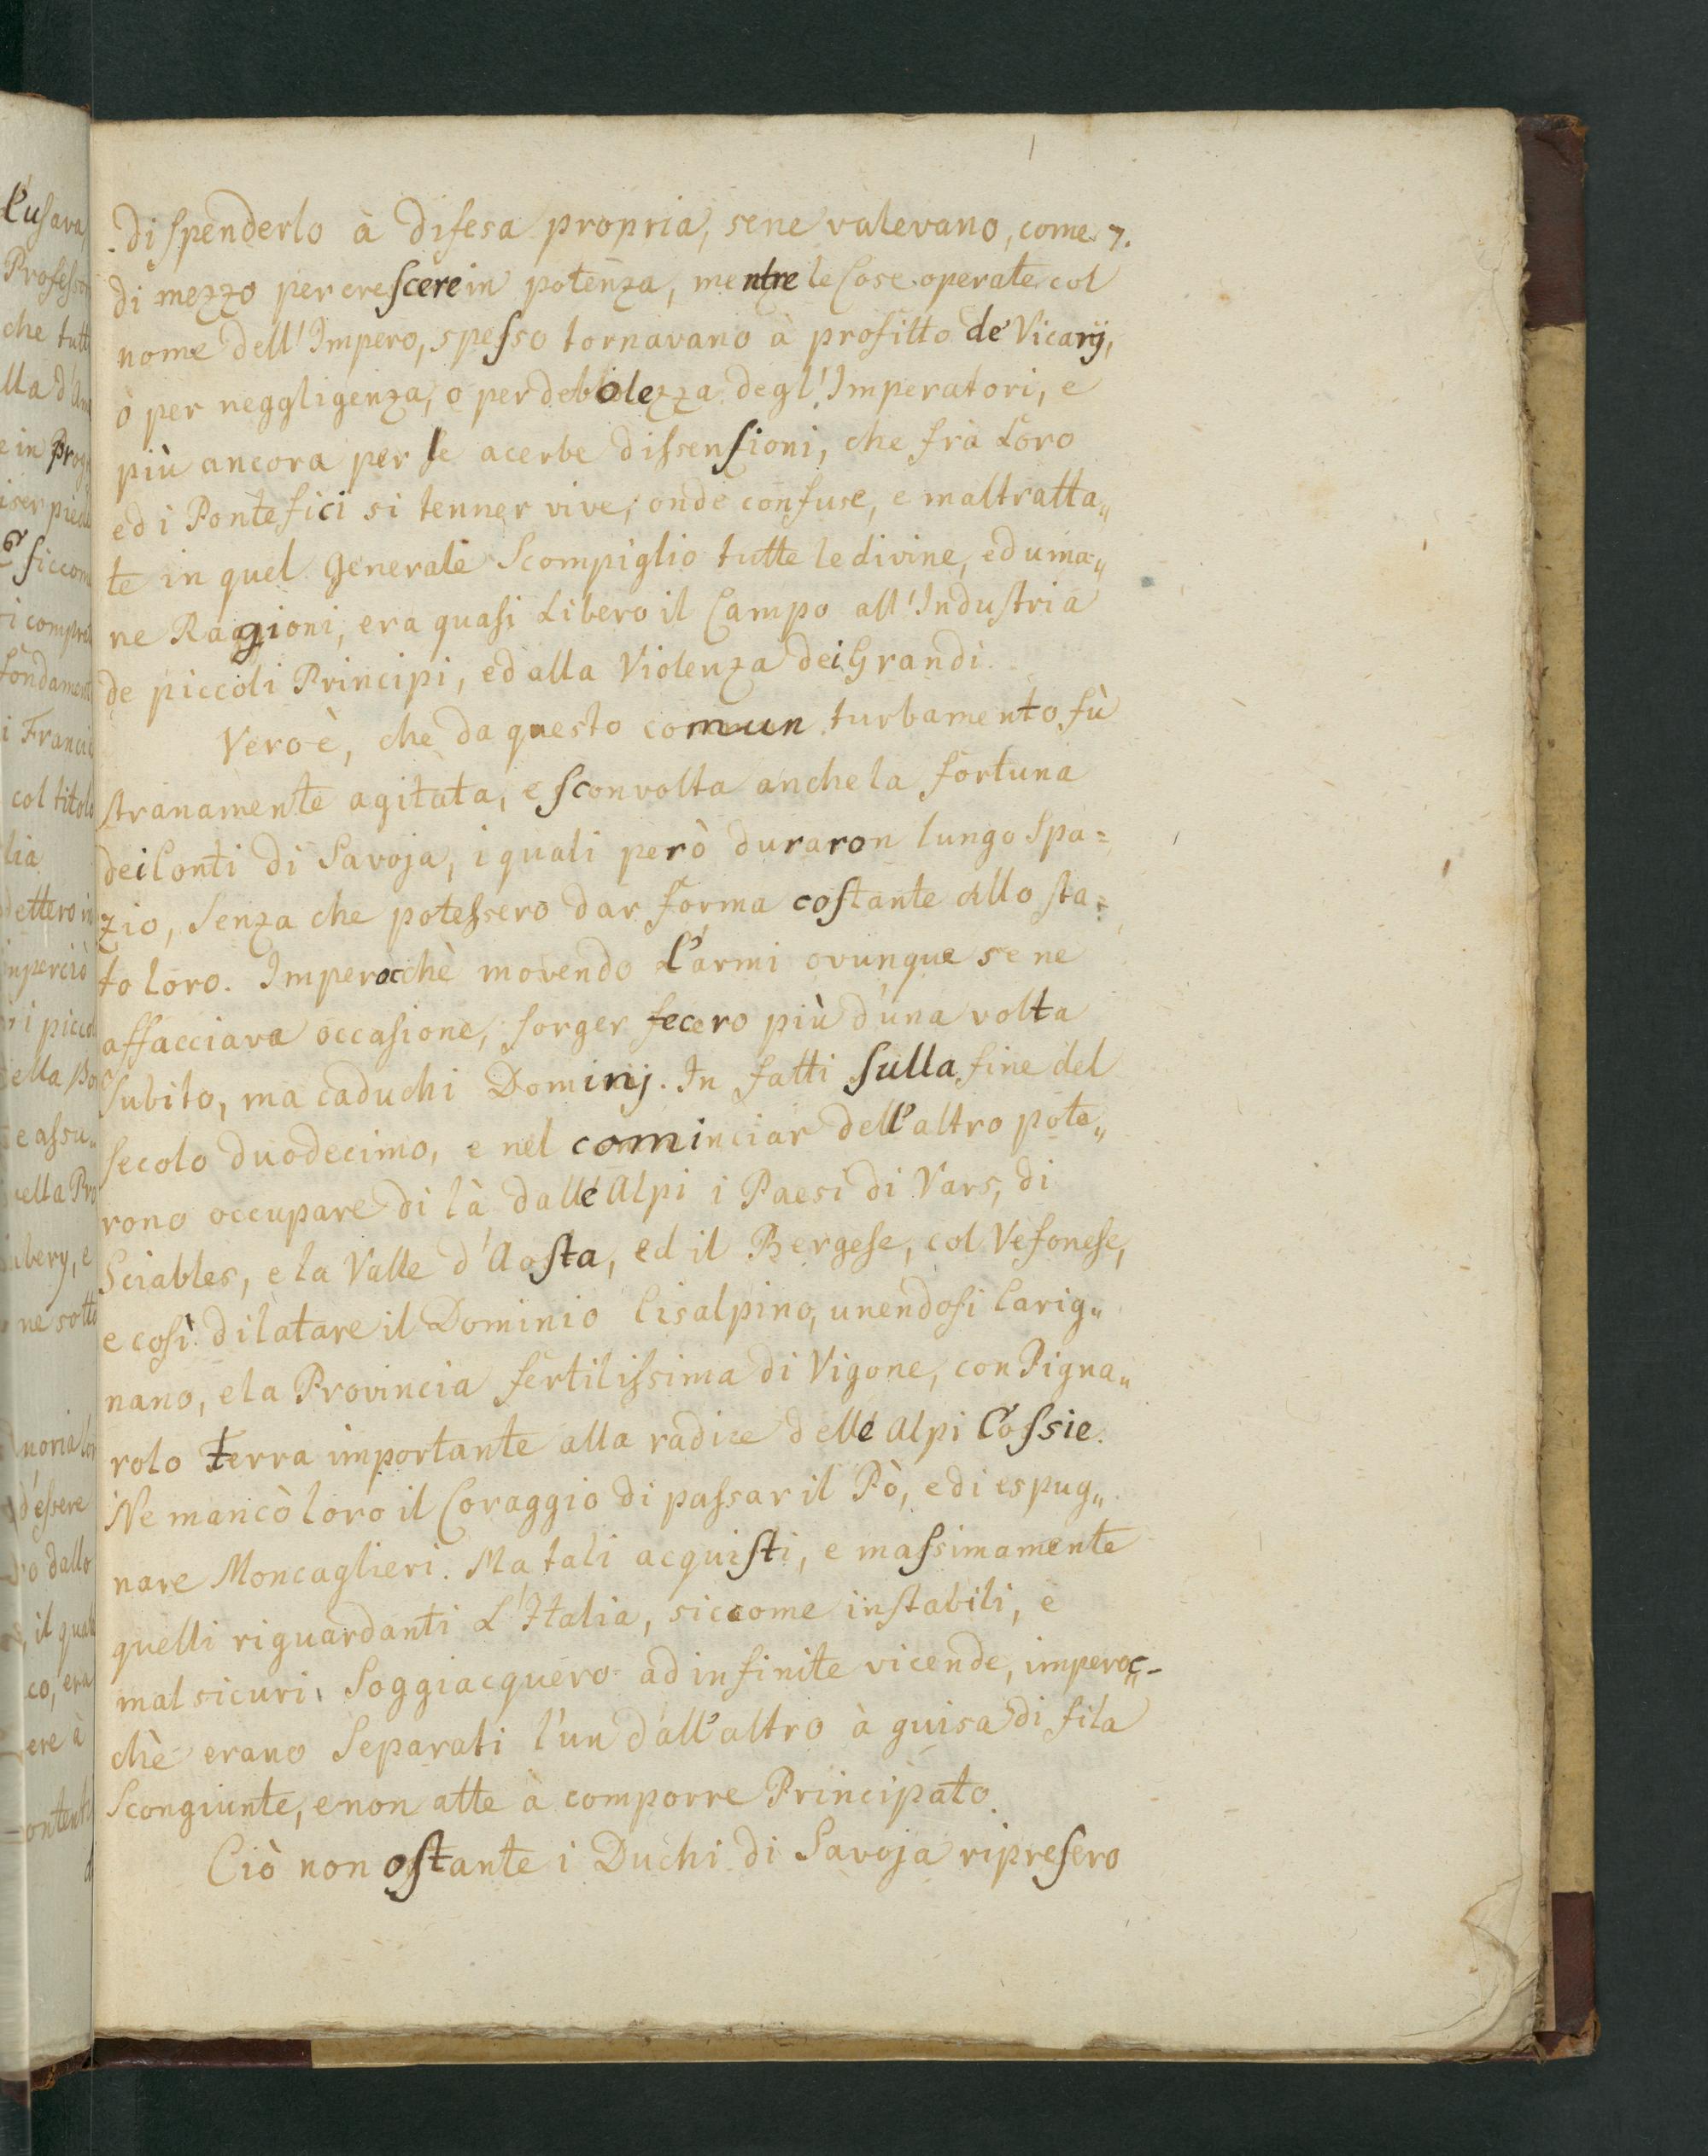 di spenderlo à difesa propria, sene valevano, come 7.
di mezzo per crescere in potenza, mentre le Cose operate col
nome dell'Impero, spesso tornavano à profitto de' Vicarij,
ò per neggligenza, o per debolezza degl'Imperatori, e
più ancora per le acerbe dissensioni, che frà Loro
ed i Pontefici si tenner vive; onde confuse, e maltratta„
te in quel Generale Scompiglio tutte le divine, ed uma„
ne Raggioni, era quasi Libero il Campo all'Industria
de piccoli Principi, ed alla Violenza dei Grandi.
Vero è, che da questo comun turbamento fù
stranamente agitata, e sconvolta anche la fortuna
dei Conti di Savoja, i quali però duraron lungo Spa=
zio, Senza che potessero dar forma costante allo sta=
to loro. Imperocchè movendo l'armi ovunque se ne
affacciava occasione, sorger fecero più d'una volta
subito, ma caduchi Dominij. In fatti sulla fine del
secolo duodecimo, e nel cominciar dell'altro pote„
rono occupare di là dalle Alpi i Paesi di Vars, di
Sciables, e la Valle d'Aosta, ed il Bergese, col Vefonese,
e così dilatare il Dominio Cisalpino, unendosi Carig„
nano, e la Provincia fertilissima di Vigone, con Pigna„
rolo Terra importante alla radice delle Alpi Cossie.
Ne mancò loro il Coraggio di passar il Pò, e di espug„
nare Moncaglieri. Ma tali acquisti, e massimamente
quelli riguardanti L'Italia, siccome instabili, e
mal sicuri, Soggiacquero ad infinite vicende, imperoc-
chè erano Separati l'un dall'altro à guisa di fila
Scongiunte, e non atte à comporre Principato.
Ciò non ostante i Duchi di Savoja ripresero